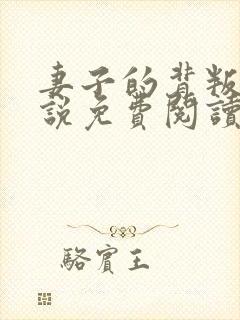 妻子的背叛
說免費閱讀
駱賓王